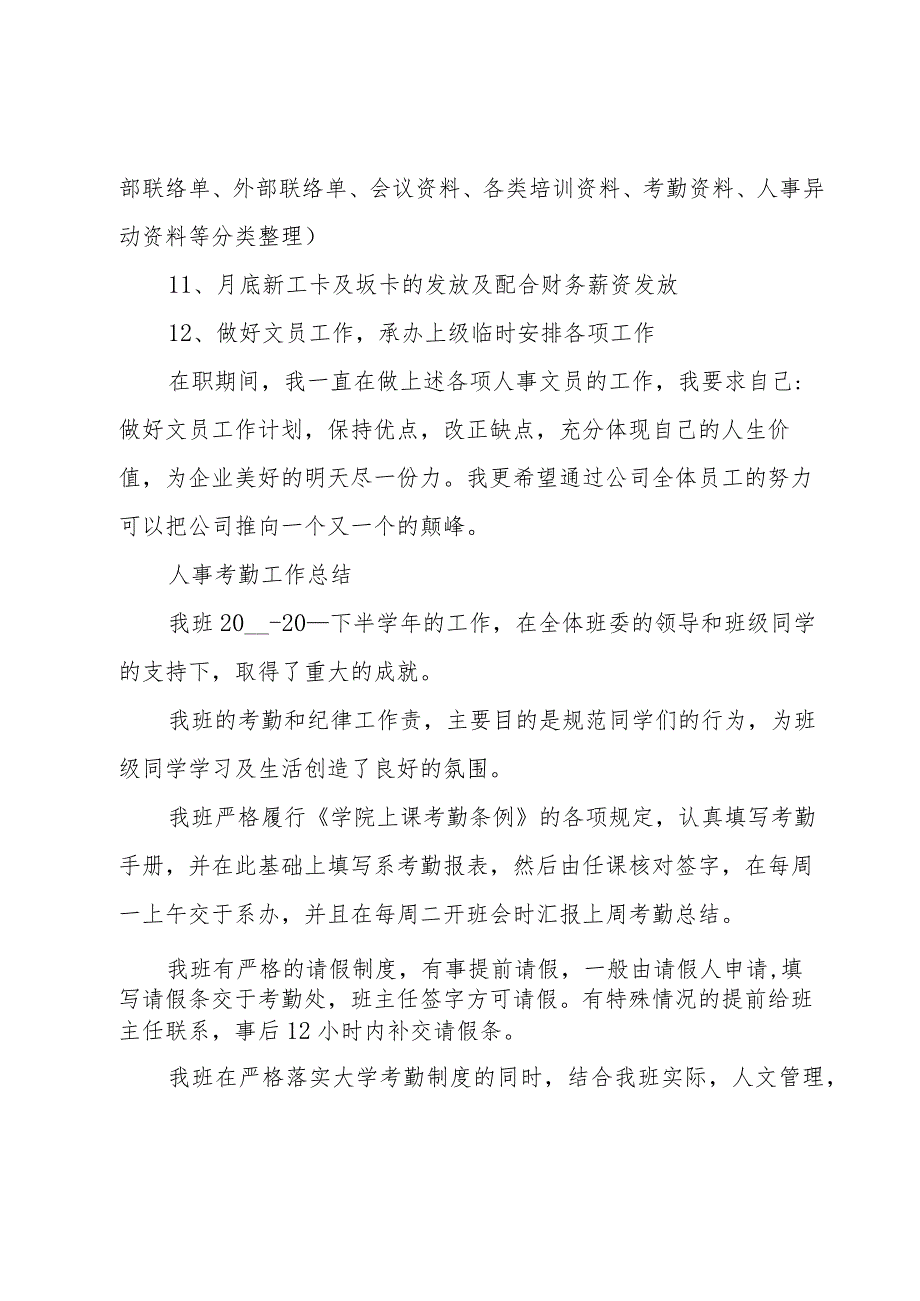 部联络单、外部联络单、会议资料、各类培训资料、考勤资料、人事异
动资料等分类整理）
11、月底新工卡及坂卡的发放及配合财务薪资发放
12、做好文员工作，承办上级临时安排各项工作
在职期间，我一直在做上述各项人事文员的工作，我要求自己:
做好文员工作计划，保持优点，改正缺点，充分体现自己的人生价
值，为企业美好的明天尽一份力。我更希望通过公司全体员工的努力
可以把公司推向一个又一个的颠峰。
人事考勤工作总结
我班20__-20—下半学年的工作，在全体班委的领导和班级同学
的支持下，取得了重大的成就。
我班的考勤和纪律工作责，主要目的是规范同学们的行为，为班
级同学学习及生活创造了良好的氛围。
我班严格履行《学院上课考勤条例》的各项规定，认真填写考勤
手册，并在此基础上填写系考勤报表，然后由任课核对签字，在每周
一上午交于系办，并且在每周二开班会时汇报上周考勤总结。
我班有严格的请假制度，有事提前请假，一般由请假人申请,填
写请假条交于考勤处，班主任签字方可请假。有特殊情况的提前给班
主任联系，事后12小时内补交请假条。
我班在严格落实大学考勤制度的同时，结合我班实际，人文管理，